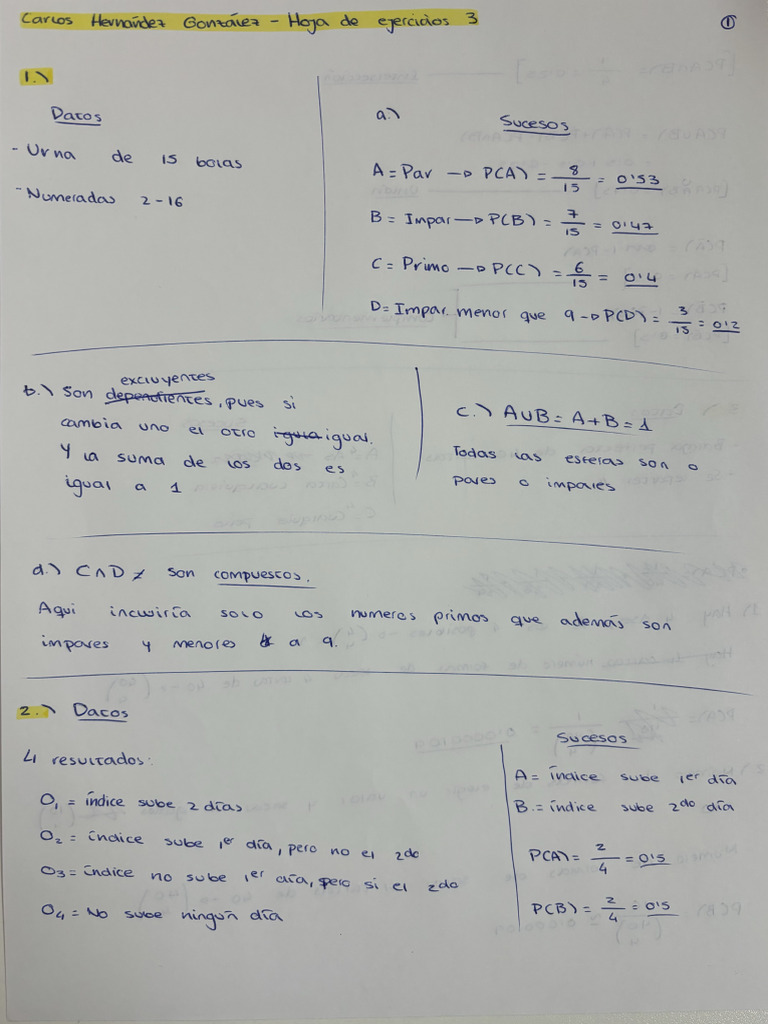 Carlos Hernández González - Hoja de ejercicios 3
1
1.)
Datos
- Urna de 15 bolas
- Numeradas 2-16
a.)
Sucesos
A = Par → P(A) = 8/15 = 0'53
B = Impar → P(B) = 7/15 = 0'47
C = Primo → P(C) = 6/15 = 0'4
D = Impar menor que 9 → P(D) = 3/15 = 0'2
excluyentes
b.) Son dependientes, pues si
cambia uno el otro igual igual.
Y la suma de los dos es
igual a 1
c.) A∪B = A+B = 1
Todas las esferas son o
pares o impares
d.) C∩D ≠ son compuestos.
Aqui incluiría solo los numeros primos que además son
impares y menores a 9.
2.) Datos
4 resultados:
O1 = índice sube 2 días
O2 = índice sube 1er día, pero no el 2do
O3 = índice no sube 1er día, pero si el 2do
O4 = No sube ningún día
Sucesos
A = índice sube 1er día
B = índice sube 2do día
P(A) = 2/4 = 0'5
P(B) = 2/4 = 0'5